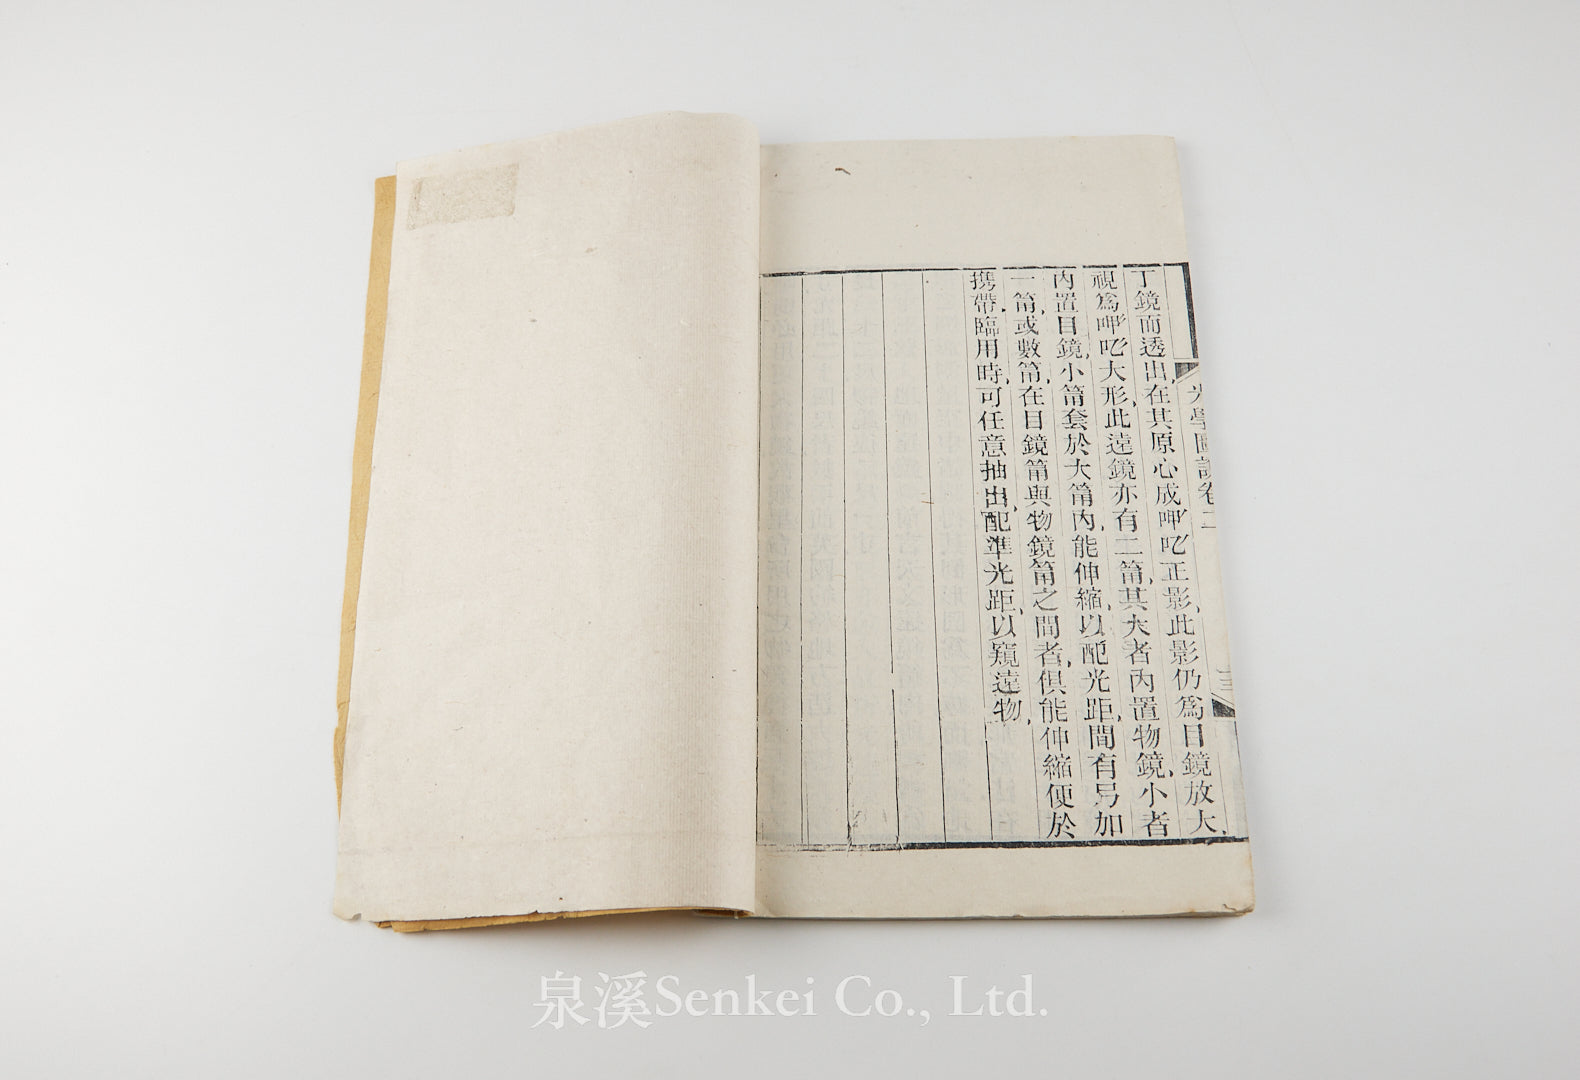 光學圖說卷二
丁鏡而透出，在其原心成呷吃正影，此影仍爲目鏡放大，
視爲呷吃大形，此遠鏡亦有二筩，其大者內置物鏡，小者
內置目鏡，小筩套於大筩內，能伸縮，以配光距，間有另加
一筩，或數筩，在目鏡筩與物鏡筩之間者，俱能伸縮，便於
携帶，臨用時，可任意抽出，配準光距，以窺遠物，
泉溪Senkei Co., Ltd.